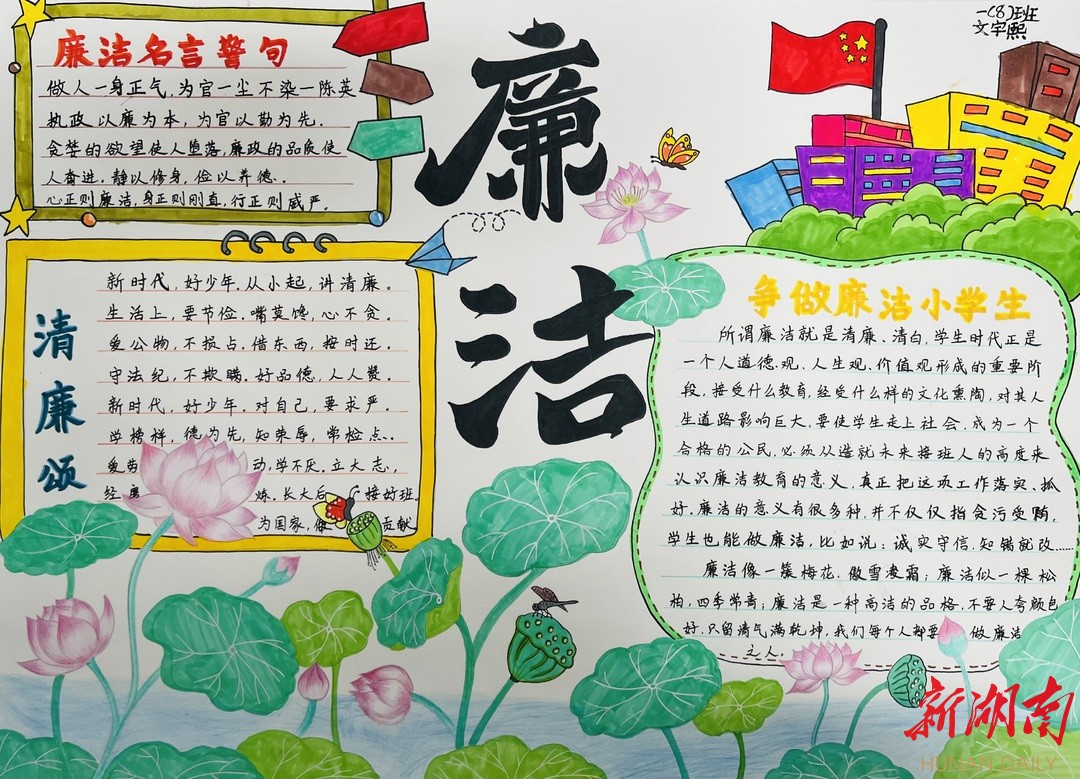 一(8)班
文宇熙
廉洁
廉洁名言警句
做人一身正气,为官一尘不染—陈英
执政以廉为本,为官以勤为先.
贪婪的欲望使人堕落,廉政的品质使
人奋进.静以修身,俭以养德..
心正则廉洁,身正则刚直,行正则威严。
清廉颂
新时代,好少年.从小起,讲清廉。
生活上,要节俭.嘴莫馋,心不贪。
爱公物,不损占.借东西,按时还。
守法纪,不欺瞒.好品德,人人赞。
新时代,好少年.对自己,要求严。
学榜样,德为先,知荣辱,常检点..
爱劳 动,学不厌.立大志,
经 磨 炼.长大后 接好班.
为国家,做 贡献
争做廉洁小学生
所谓廉洁就是清廉、清白,学生时代正是
一个人道德观、人生观、价值观形成的重要阶
段,接受什么教育,经受什么样的文化熏陶,对其人
生道路影响巨大,要使学生走上社会,成为一个
合格的公民,必须从造就未来接班人的高度来
认识廉洁教育的意义,真正把这项工作落实、抓
好.廉洁的意义有很多种,并不仅仅指贪污受贿,
学生也能做廉洁,比如说:诚实守信,知错就改......
廉洁像一簇梅花,傲雪凌霜;廉洁似一棵松
柏,四季常青;廉洁是一种高洁的品格,不要人夸颜色
好,只留清气满乾坤,我们每个人都要 做廉洁
之人.
新湖南
HUNAN DAILY